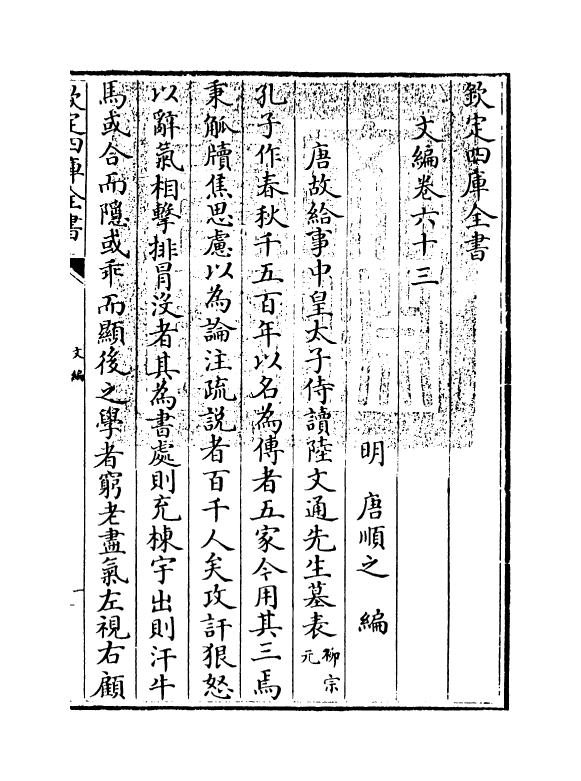 欽定四庫全書
文編卷六十三
明 唐順之 編
唐故給事中皇太子侍讀陸文通先生墓表柳宗元
孔子作春秋千五百年以名為傳者五家今用其三焉
秉觚牘焦思慮以為論注疏說者百千人矣攻訐狠怒
以辭氣相擊排冒沒者其為書處則充棟宇出則汗牛
馬或合而隱或乖而顯後之學者窮老盡氣左視右顧
欽定四庫全書
文編
一